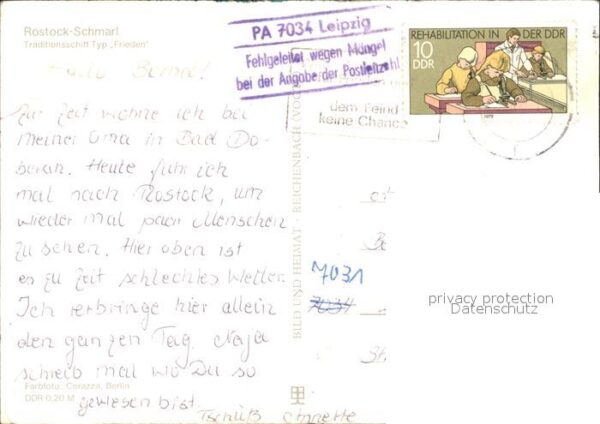 Rostock-Schmarl
Traditionsschiff Typ „Frieden"
Hallo Bernd!
Zur Zeit wohne ich bei
meiner Oma in Bad Do-
beran. Heute fuhr ich
mal nach Rostock, um
wieder mal paar Menschen
zu sehen. Hier oben ist
es zu Zeit schlechtes Wetter.
Ich verbringe hier allein
den ganzen Tag. Naja
schreib mal wo Du so
gewesen bist.
Tschüß Annette
Farbfoto: Corazza, Berlin
DDR 0,20 M
PA 7034 Leipzig
Fehlgeleitet wegen Mängel
bei der Angabe der Postleitzahl
dem Feind
keine Chance
REHABILITATION IN DER DDR
10
DDR
1979
BILD UND HEIMAT · REICHENBACH (VOGTL
7031
7034
privacy protection
Datenschutz